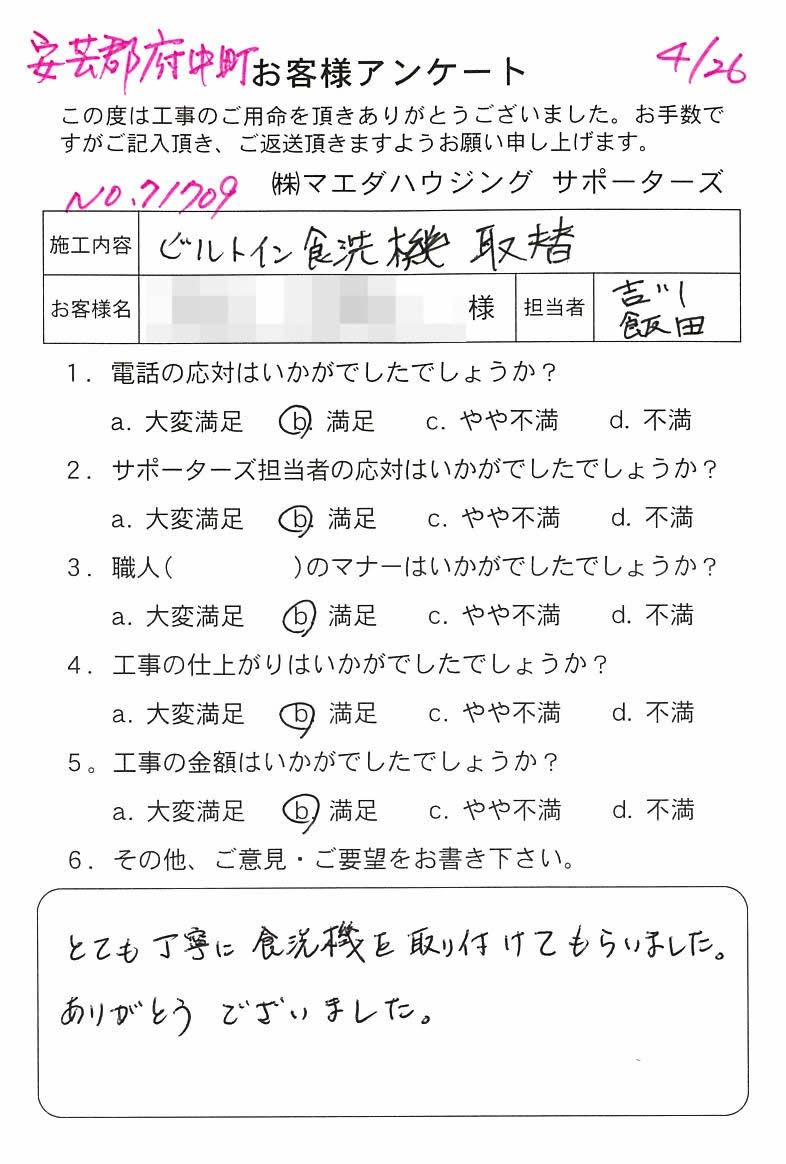 安芸郡府中町 お客様アンケート 4/26
この度は工事のご用命を頂きありがとうございました。お手数で
すがご記入頂き、ご返送頂きますようお願い申し上げます。
NO.71709 ㈱マエダハウジング サポーターズ
施工内容 ビルトイン食洗機 取替
お客様名 様 担当者 吉川
飯田
1. 電話の応対はいかがでしたでしょうか？
a. 大変満足 b. 満足 c. やや不満 d. 不満
2. サポーターズ担当者の応対はいかがでしたでしょうか？
a. 大変満足 b. 満足 c. やや不満 d. 不満
3. 職人( )のマナーはいかがでしたでしょうか？
a. 大変満足 b. 満足 c. やや不満 d. 不満
4. 工事の仕上がりはいかがでしたでしょうか？
a. 大変満足 b. 満足 c. やや不満 d. 不満
5。工事の金額はいかがでしたでしょうか？
a. 大変満足 b. 満足 c. やや不満 d. 不満
6. その他、ご意見・ご要望をお書き下さい。
とても丁寧に食洗機を取り付けてもらいました。
ありがとうございました。